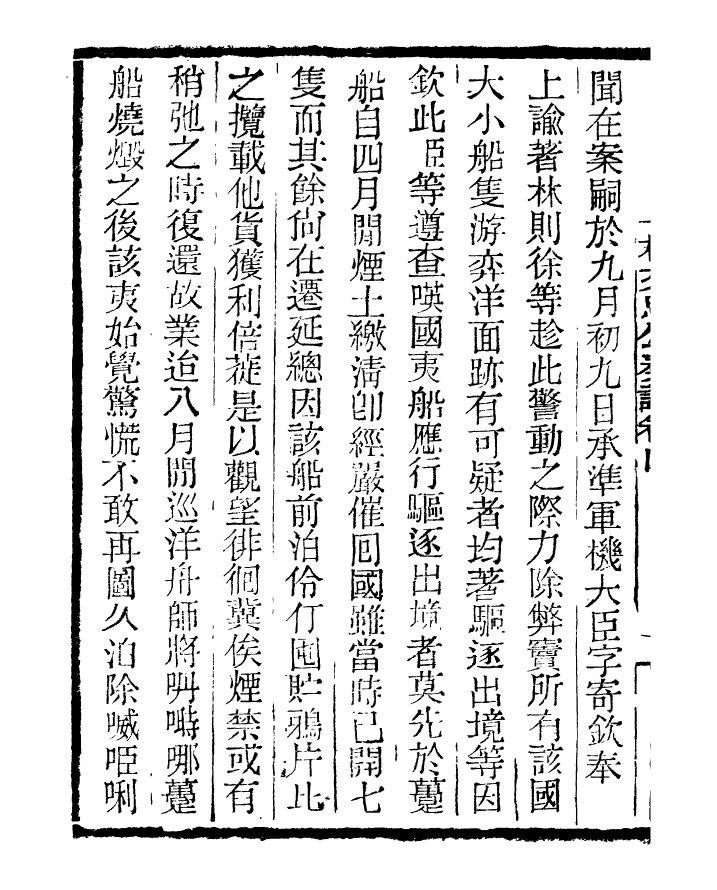 聞在案嗣於九月初九日承準軍機大臣字寄欽奉
上諭著林則徐等趁此警動之際力除弊竇所有該國
大小船隻游弈洋面跡有可疑者均著驅逐出境等因
欽此臣等遵查嘆國夷船應行驅逐出境者莫先於躉
船自四月閒煙土繳淸卽經嚴催囘國雖當時已開七
隻而其餘尙在遷延總因該船前泊伶仃囤貯鴉片比
之攬載他貨獲利倍蓰是以觀望徘徊冀俟煙禁或有
稍弛之時復還故業迨八月閒巡洋舟師將𠰻嗬哪躉
船燒燬之後該夷始覺驚慌不敢再圖久泊除喴啞唎